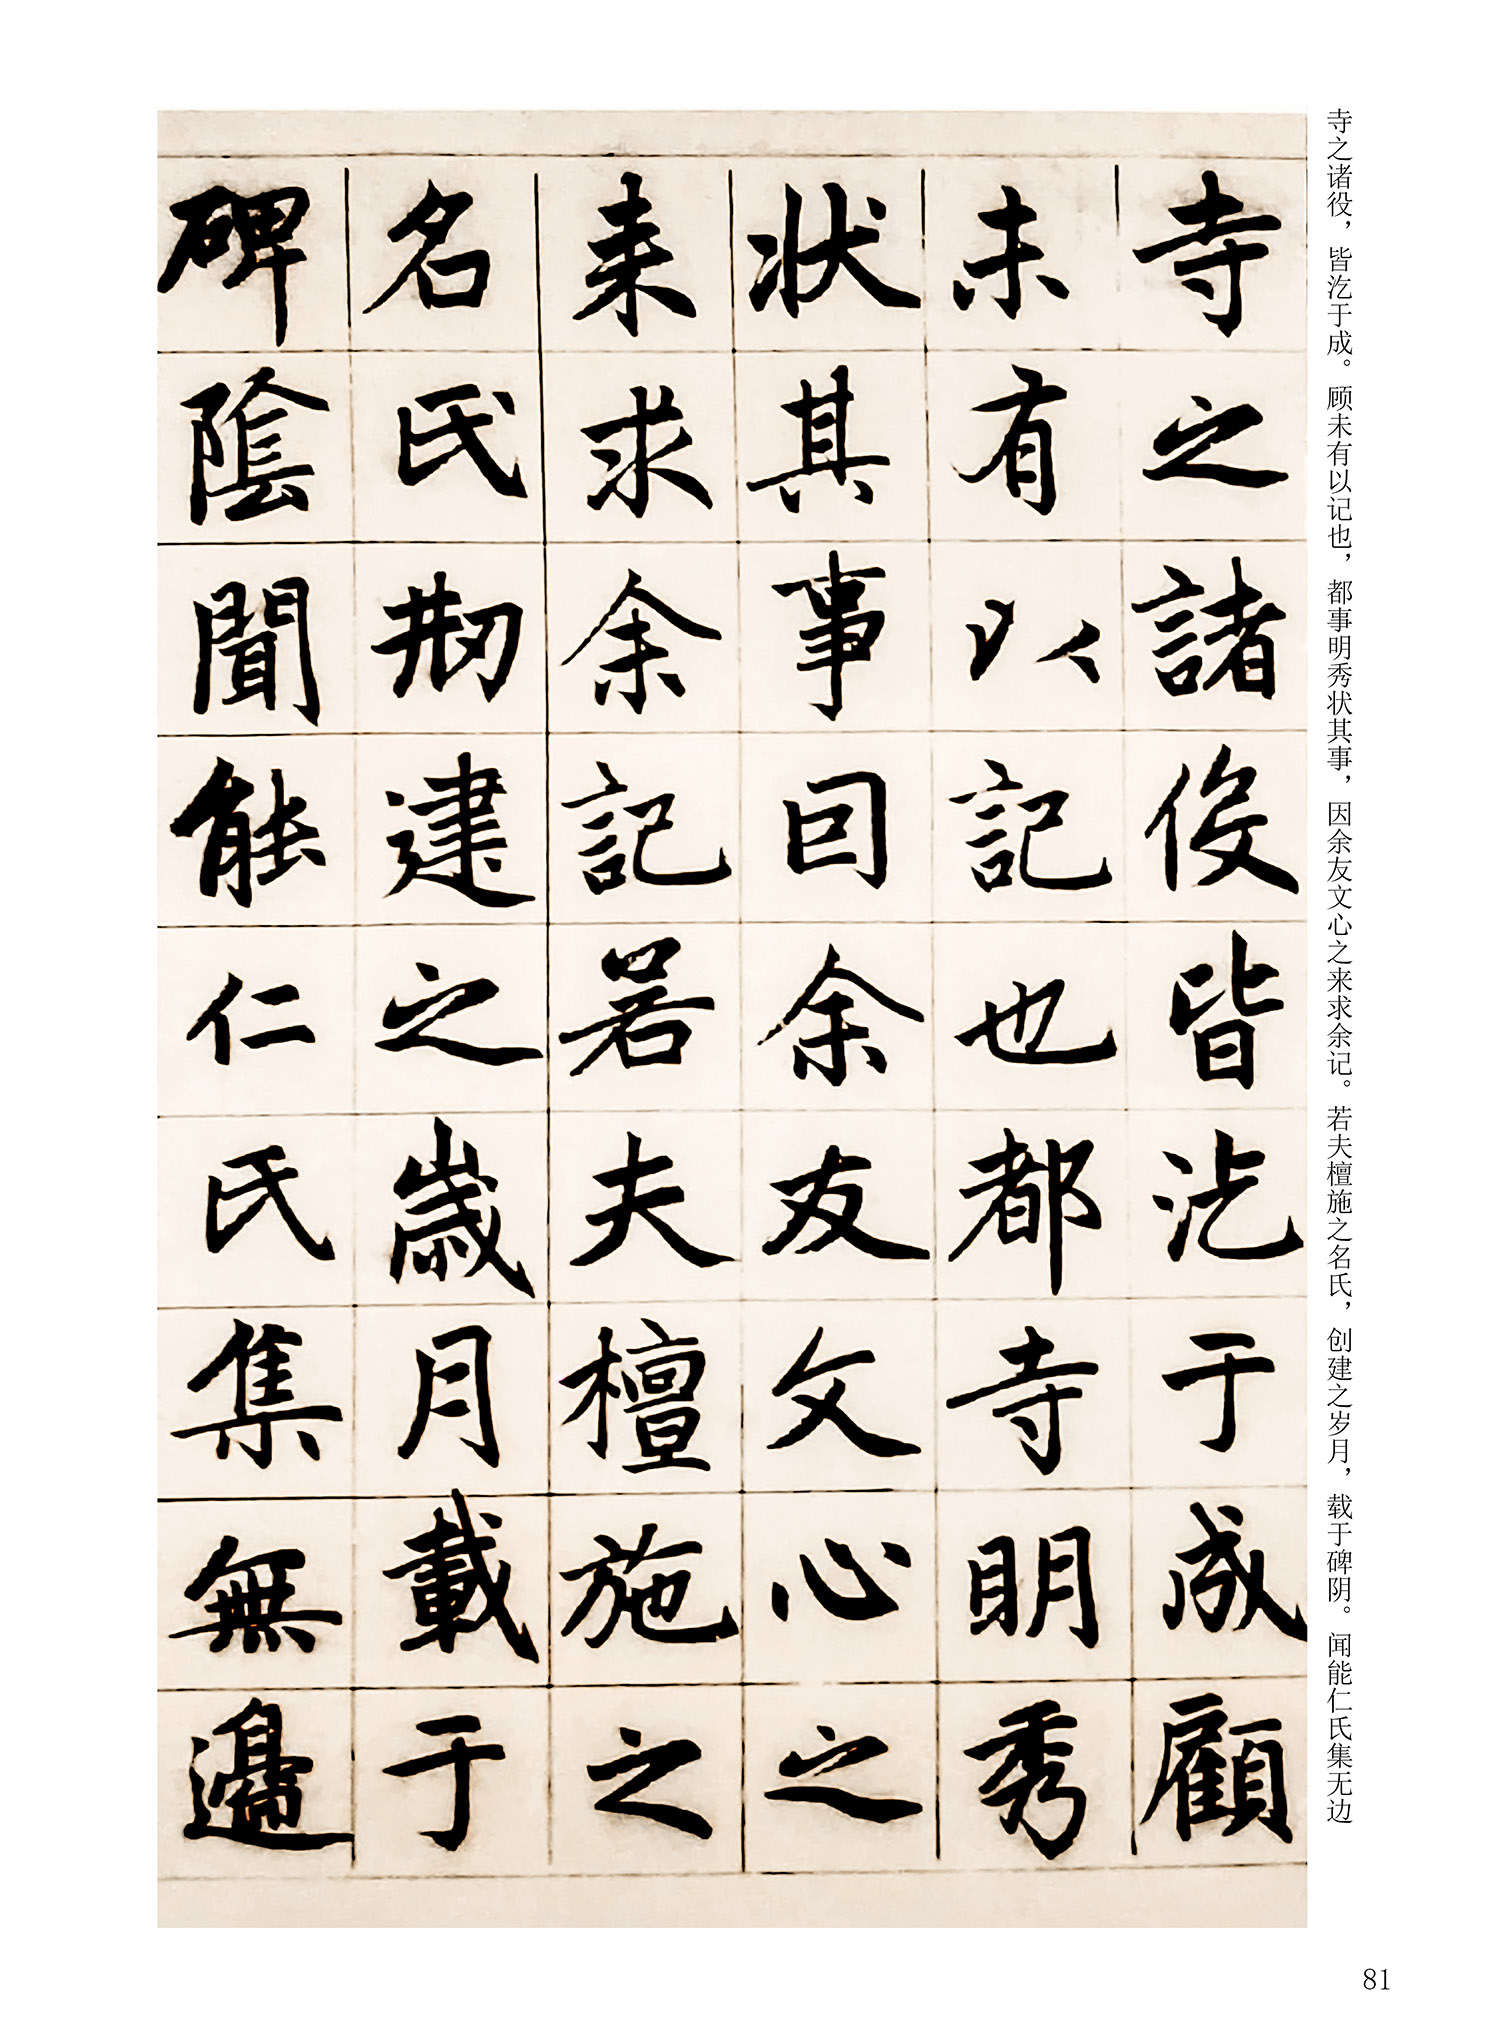 寺之诸役，皆汔于成。顾未有以记也，都事明秀状其事，因余友文心之来求余记。若夫檀施之名氏，创建之岁月，载于碑阴。闻能仁氏集无边
寺之諸役皆汔于成顧
未有以記也都寺明秀
状其事囙余友文心之
来求余記若夫檀施之
名氏刱建之歲月載于
碑陰聞能仁氏集無邊
81